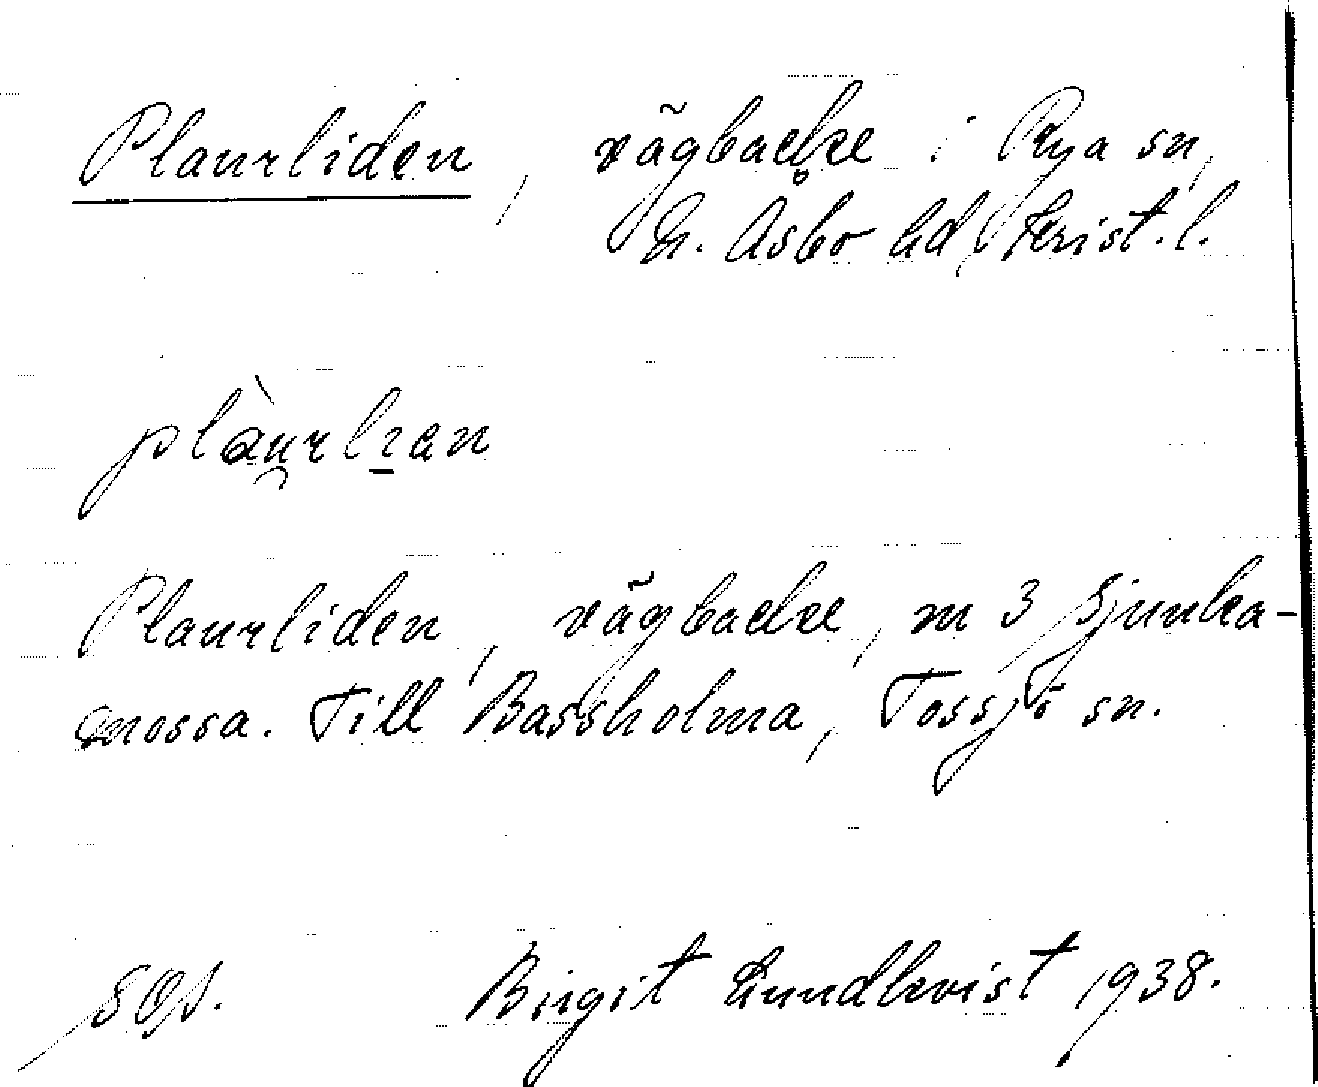 Planrliden, vägbacke i Rya sn,
N. Åsbo hd, Krist. l.
Planrliden, vägbacke, m 3 Sjunka-
mossa. Till Bassholma, Tossjö sn.
Birgit Lundkvist 1938.